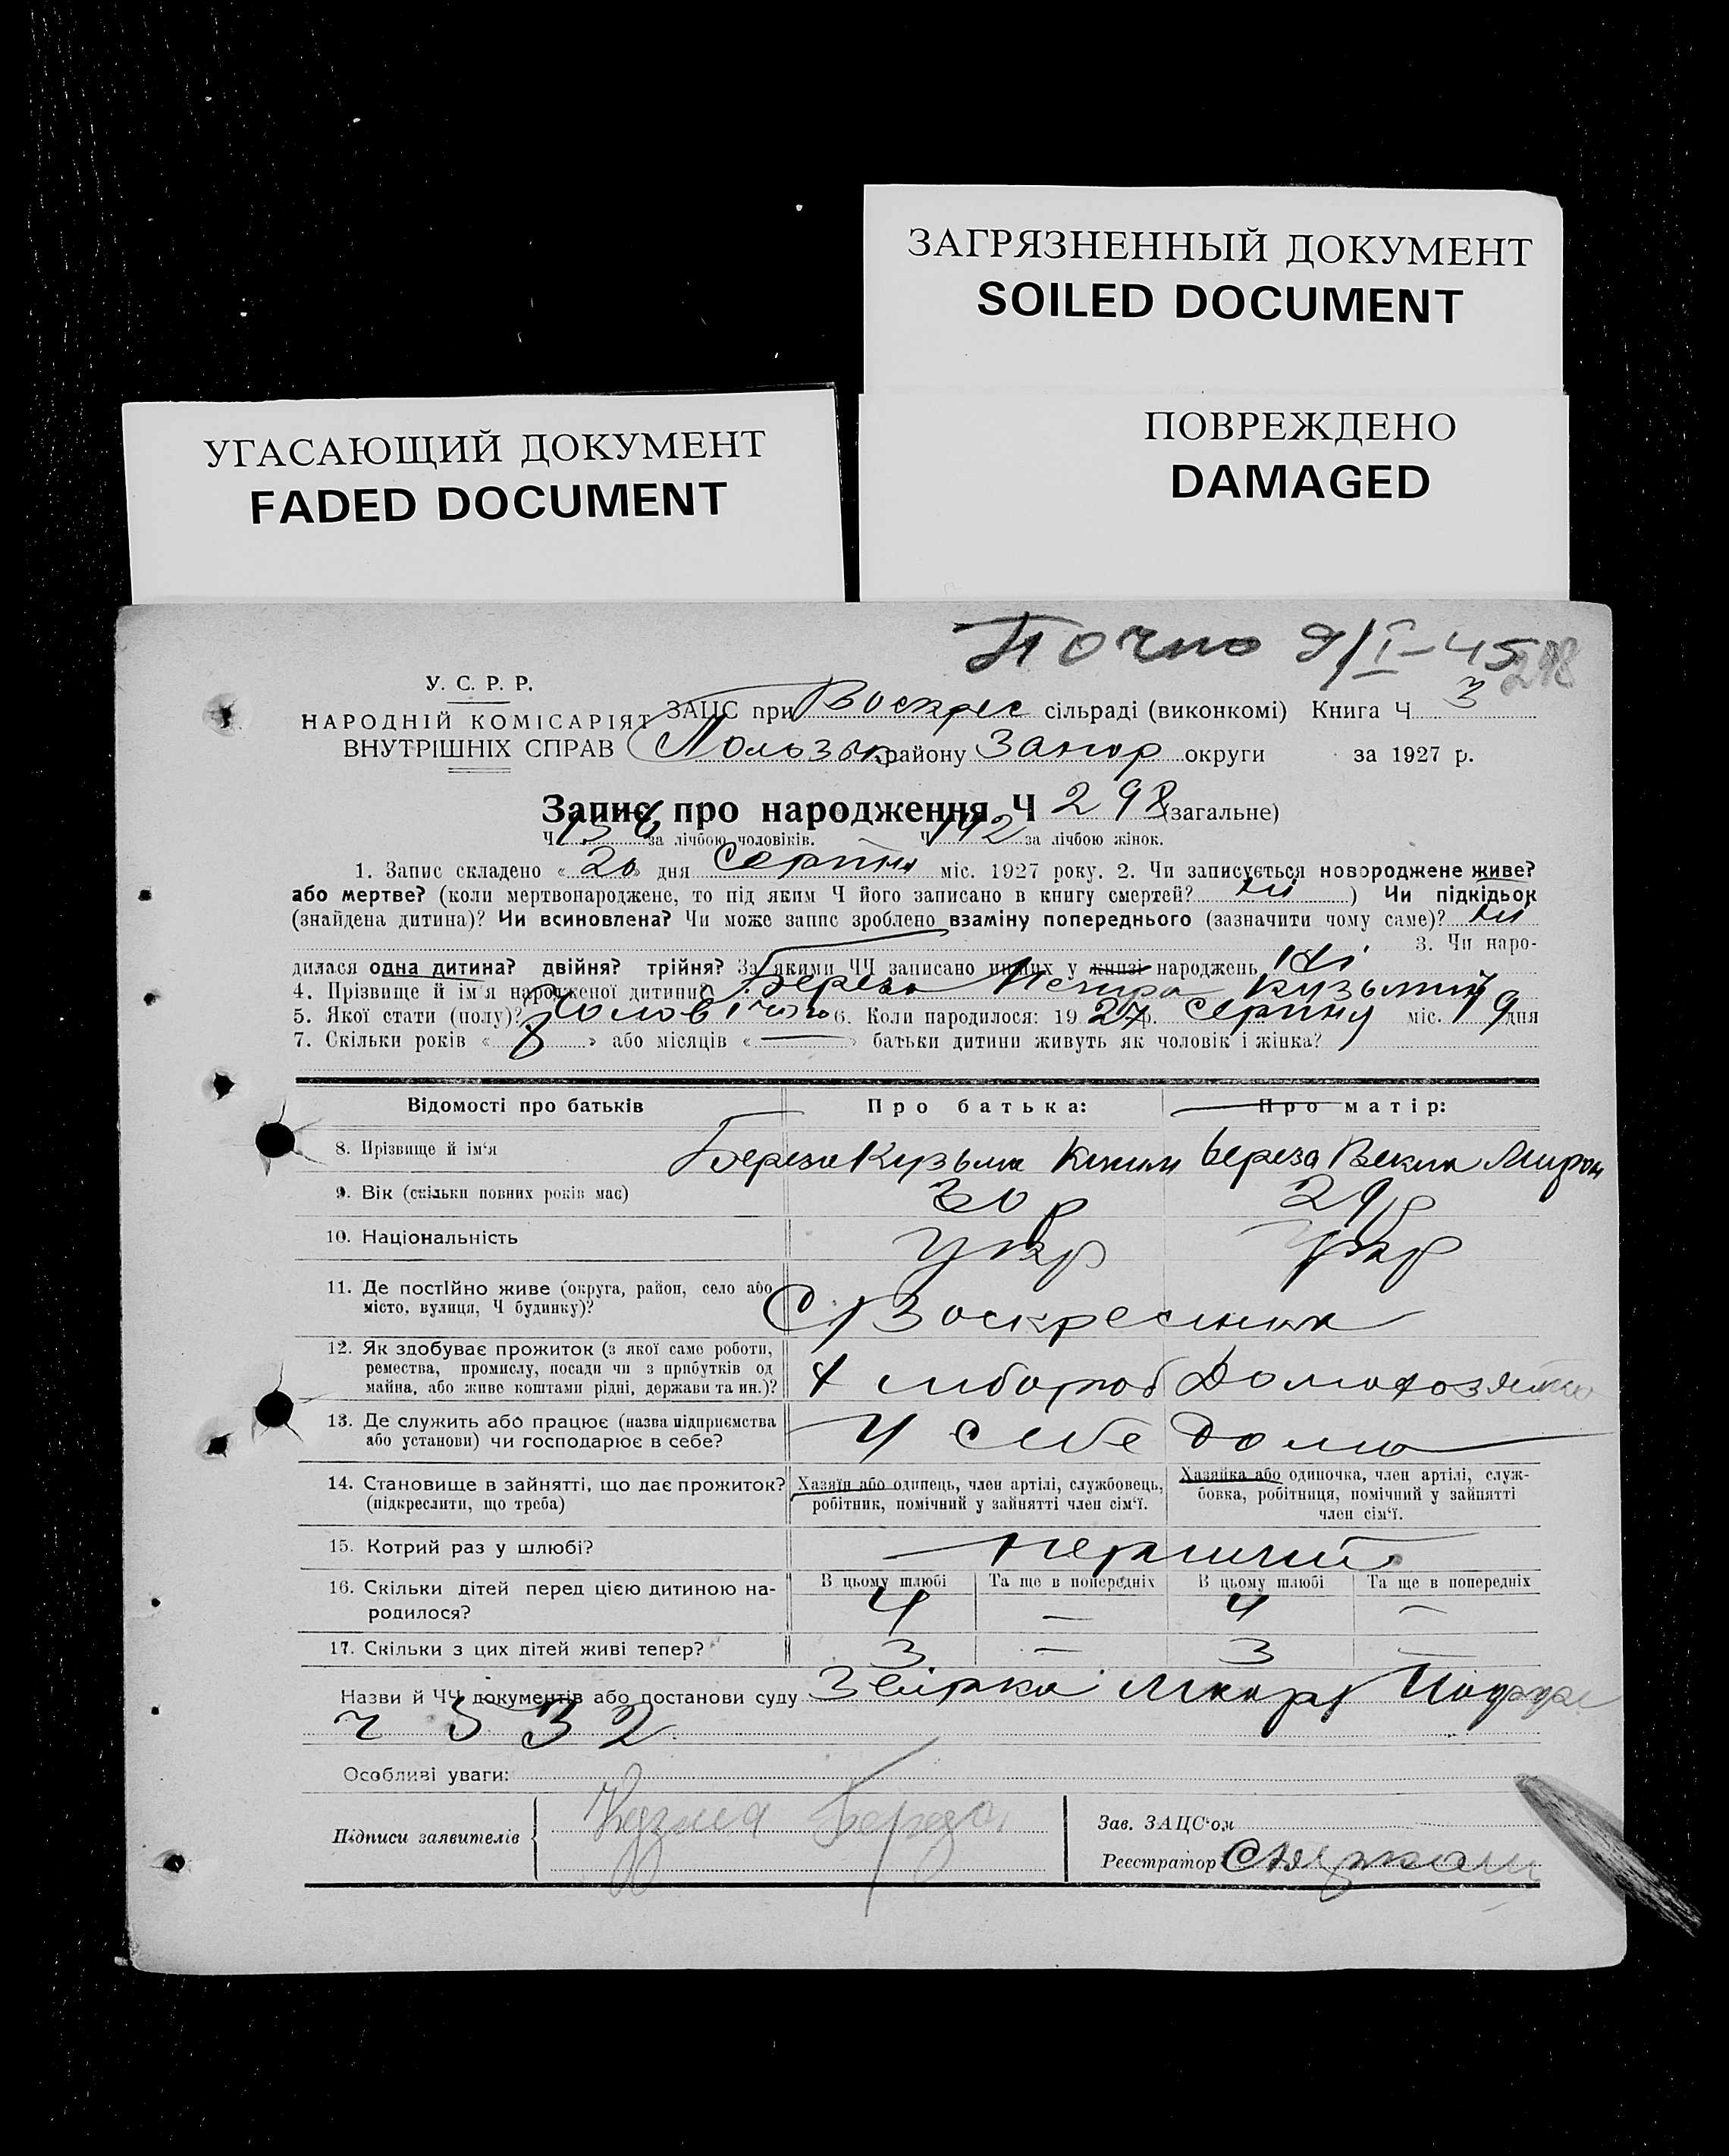 ЗАГРЯЗНЕННЫЙ ДОКУМЕНТ
SOILED DOCUMENT
УГАСАЮЩИЙ ДОКУМЕНТ
FADED DOCUMENT
ПОВРЕЖДЕНО
DAMAGED
Точно 9/I-45 298
У. С. Р. Р.
НАРОДНІЙ КОМІСАРІЯТ
ВНУТРІШНІХ СПРАВ
ЗАЦС при Воскрес сільраді (виконкомі) Книга Ч 3
району Запор округи за 1927 р.
Запис про народження Ч 298 (загальне)
Ч 156 за лічбою чоловіків. Ч 142 за лічбою жінок.
1. Запис складено « 20 » дня Серпня міс. 1927 року. 2. Чи записується новороджене живе?
або мертве? (коли мертвонароджене, то під яким Ч його записано в книгу смертей? ні ) Чи підкідьок
(знайдена дитина)? Чи всиновлена? Чи може запис зроблено взаміну попереднього (зазначити чому саме)? ні
3. Чи наро-
дилася одна дитина? двійня? трійня? За якими ЧЧ записано инших у книзі народжень ні
4. Прізвище й ім'я народженої дитини? Береза Петро Кузьмич
5. Якої стати (полу)? Чоловічого 6. Коли народилося: 1927 р. Серпня міс. 19 дня
7. Скільки років « 8 » або місяців « — » батьки дитини живуть як чоловік і жінка?
Відомості про батьків Про батька: Про матір:
8. Прізвище й ім'я Береза Кузьма Береза Векла Мирон
9. Вік (скільки повних років має) 30 р 29 р
10. Національність Укр Укр
11. Де постійно живе (округа, район, село або
місто, вулиця, Ч будинку)? С Воскресенка
12. Як здобуває прожиток (з якої саме роботи,
ремества, промислу, посади чи з прибутків од
майна, або живе коштами рідні, держави та ин.)? Хлибороб Домохозяйка
13. Де служить або працює (назва підприємства
або установи) чи господарює в себе? У себе дома
14. Становище в зайнятті, що дає прожиток?
(підкреслити, що треба)
Хазяїн або одинець, член артілі, службовець,
робітник, помічний у зайнятті член сім'ї.
Хазяйка або одиночка, член артілі, служ-
бовка, робітниця, помічний у зайнятті
член сім'ї.
15. Котрий раз у шлюбі? перший
16. Скільки дітей перед цією дитиною на-
родилося?
В цьому шлюбі Та ще в попередніх В цьому шлюбі Та ще в попередніх
4 — 4 —
17. Скільки з цих дітей живі тепер? 3 — 3 —
Назви й ЧЧ документів або постанови суду
ч 5332
Особливі уваги:
Підписи заявителів Кузма Береза
Зав. ЗАЦС'ом
Реєстратор